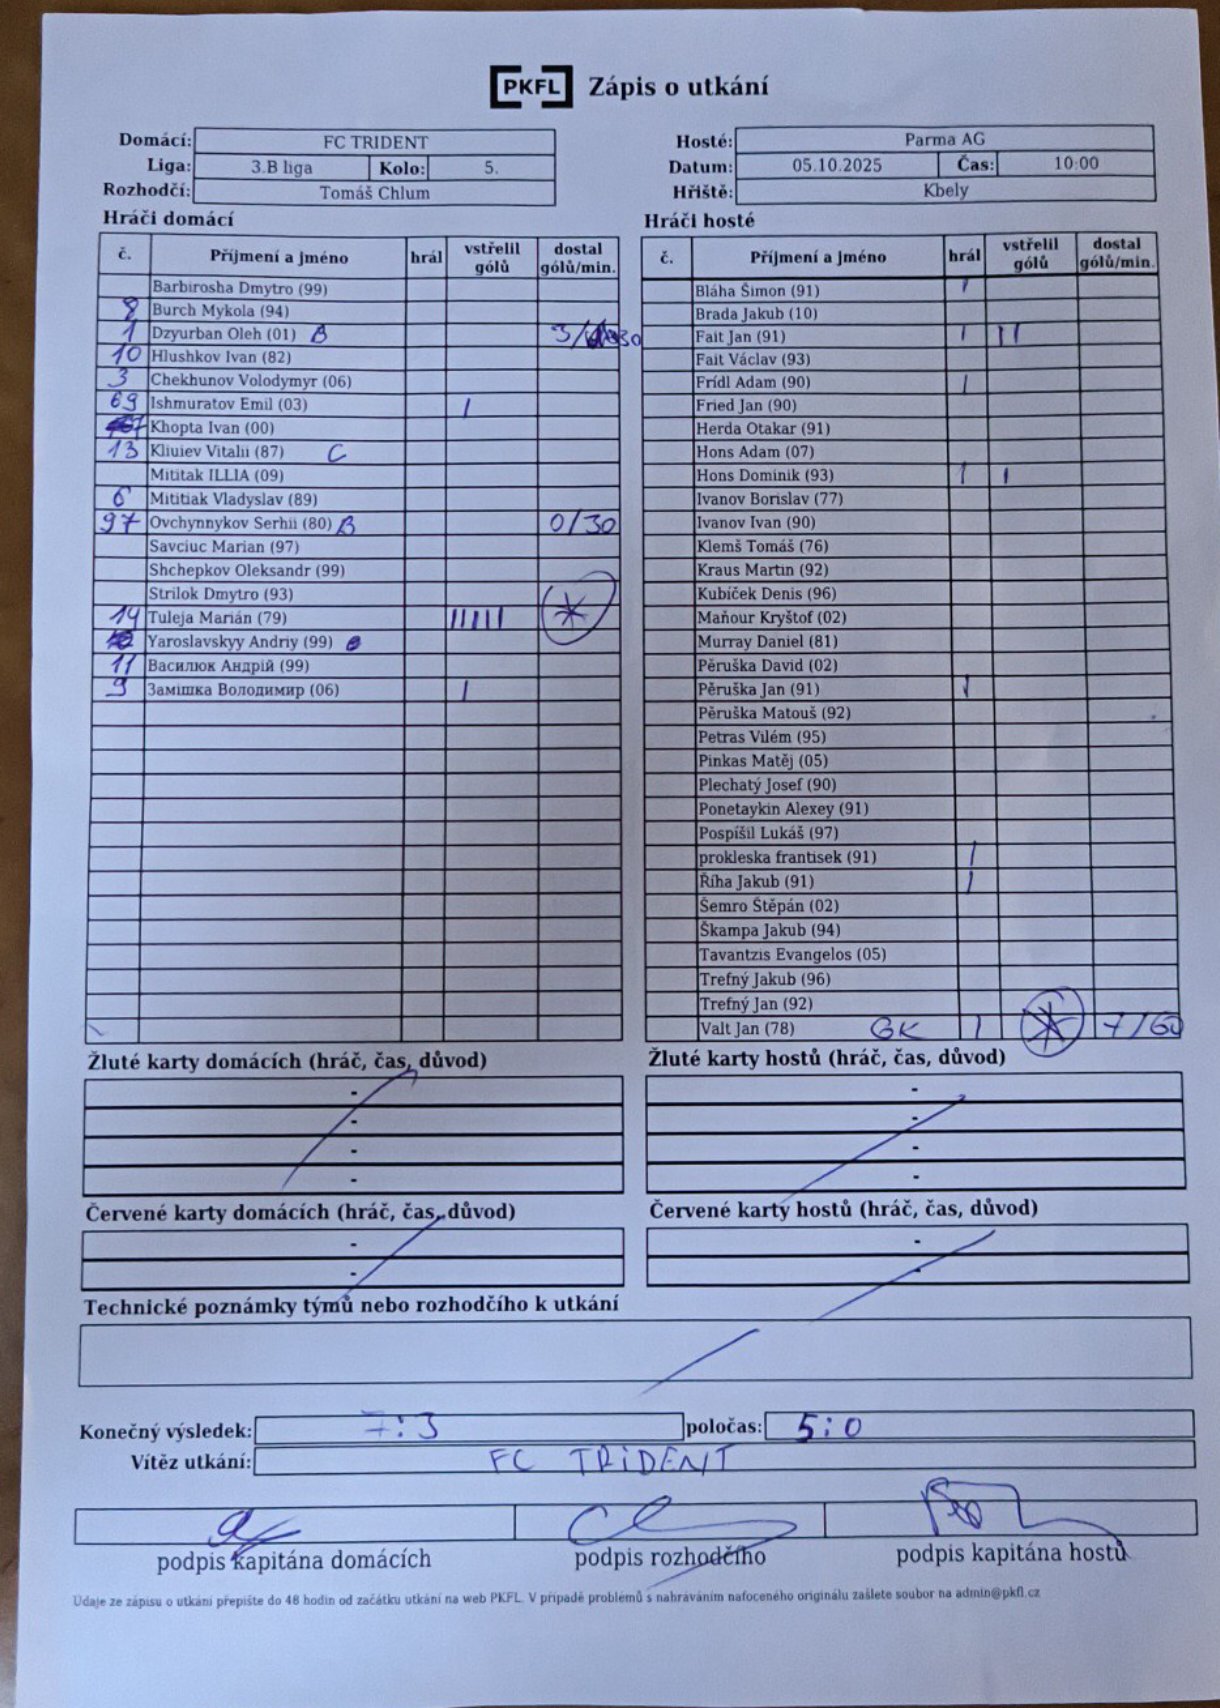 PKFL Zápis o utkání
Domácí: FC TRIDENT
Liga: 3.B liga Kolo: 5.
Rozhodčí: Tomáš Chlum
Hosté: Parma AG
Datum: 05.10.2025 Čas: 10:00
Hřiště: Kbely
Hráči domácí
č. Příjmení a jméno hrál vstřelil gólů dostal gólů/min.
Barbirosha Dmytro (99)
8 Burch Mykola (94)
1 Dzyurban Oleh (01) B 3/30
10 Hlushkov Ivan (82)
3 Chekhunov Volodymyr (06)
69 Ishmuratov Emil (03) I
Khopta Ivan (00)
13 Kliuiev Vitalii (87) C
Mititak ILLIA (09)
6 Mititiak Vladyslav (89)
97 Ovchynnykov Serhii (80) B 0/30
Savciuc Marian (97)
Shchepkov Oleksandr (99)
Strilok Dmytro (93)
14 Tuleja Marián (79) IIIII *
Yaroslavskyy Andriy (99)
11 Василюк Андрій (99)
9 Замішка Володимир (06) I
Hráči hosté
č. Příjmení a jméno hrál vstřelil gólů dostal gólů/min.
Bláha Šimon (91) I
Brada Jakub (10)
Fait Jan (91) I II
Fait Václav (93)
Frídl Adam (90) I
Fried Jan (90)
Herda Otakar (91)
Hons Adam (07)
Hons Dominik (93) I I
Ivanov Borislav (77)
Ivanov Ivan (90)
Klemš Tomáš (76)
Kraus Martin (92)
Kubíček Denis (96)
Maňour Kryštof (02)
Murray Daniel (81)
Pěruška David (02)
Pěruška Jan (91) I
Pěruška Matouš (92)
Petras Vilém (95)
Pinkas Matěj (05)
Plechatý Josef (90)
Ponetaykin Alexey (91)
Pospíšil Lukáš (97)
prokleska frantisek (91) I
Říha Jakub (91) I
Šemro Štěpán (02)
Škampa Jakub (94)
Tavantzis Evangelos (05)
Trefný Jakub (96)
Trefný Jan (92)
Valt Jan (78) GK I * 7/60
Žluté karty domácích (hráč, čas, důvod)
-
-
-
-
Žluté karty hostů (hráč, čas, důvod)
-
-
-
-
Červené karty domácích (hráč, čas, důvod)
-
-
Červené karty hostů (hráč, čas, důvod)
-
-
Technické poznámky týmů nebo rozhodčího k utkání
Konečný výsledek: 7:3 poločas: 5:0
Vítěz utkání: FC TRIDENT
podpis kapitána domácích podpis rozhodčího podpis kapitána hostů
Údaje ze zápisu o utkání přepište do 48 hodin od začátku utkání na web PKFL. V případě problémů s nahráváním nafoceného originálu zašlete soubor na admin@pkfl.cz